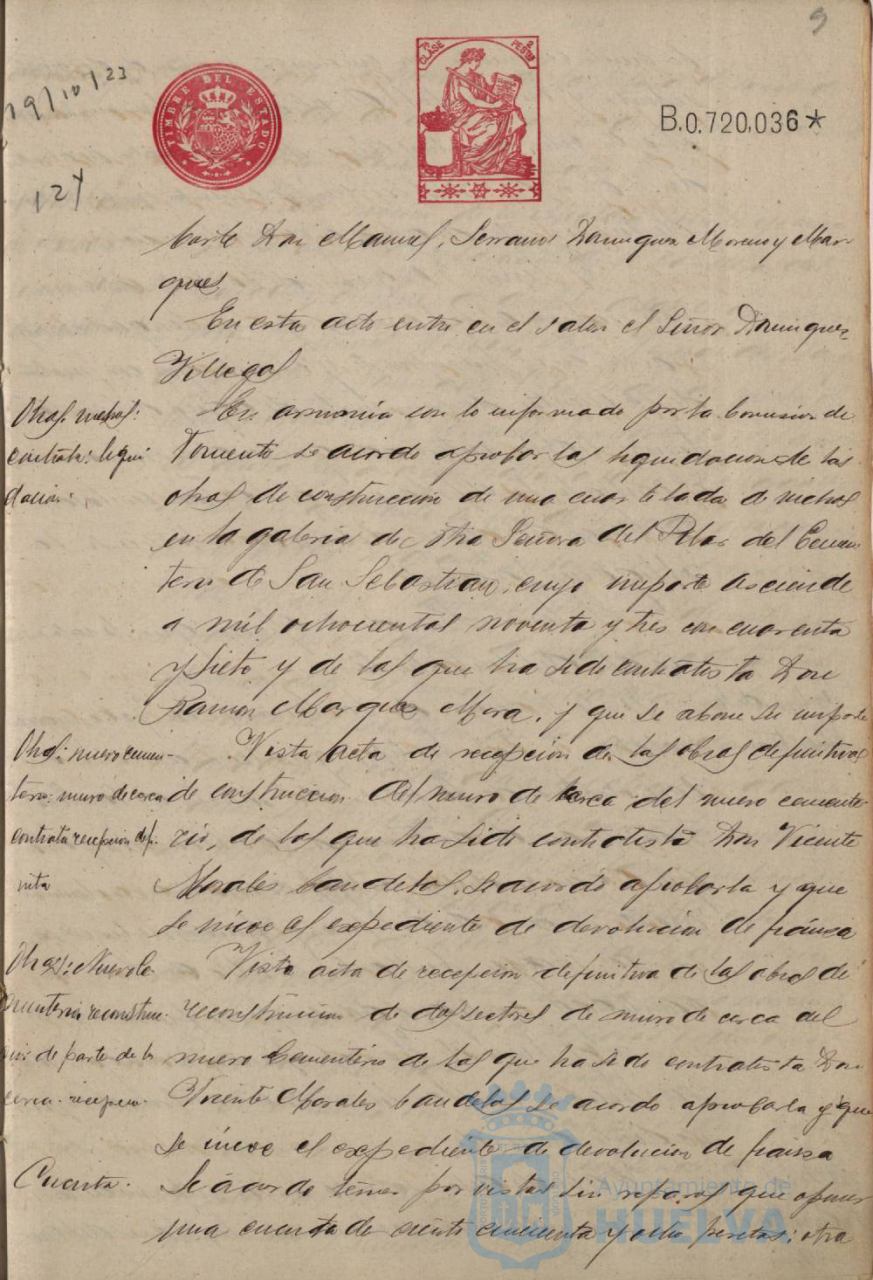 9
19/10/23
TIMBRE DEL ESTADO
7ª CLASE
2 PESETAS
B.0.720,036*
124
Don Manuel, Serrano Dominguez Moreno y Mar-
quez
En este acto entró en el salon el Señor Dominguez
Villegas
Obras: nichos:
contrata: liqui
dación:
En armonia con lo informado por la Comision de
Fomento se acordó aprobar las liquidacion de las
obras de construccion de una cuartelada de nichos
en la galeria de Ntra Señora del Pilar del Cemen
terio de San Sebastian, cuyo importe asciende
a mil ochocientas noventa y tres con cuarenta
y siete y de las que ha sido contratista Don
Ramon Marquez Mora, y que se abone su importe
Obras: nuevo cemen-
terio: muro de cerca
contrata recepcion defi-
nitiva
Vista acta de recepcion de las obras definitivas
de construccion del muro de cerca del nuevo cemente-
rio, de las que ha sido contratista Don Vicente
Morales Candelas, se acordó aprobarla y que
se inicie el expediente de devolucion de fianza
Obras: Nuevo Ce
menterio reconstruc-
cion de parte de la
cerca. recepcion.
Vista acta de recepcion definitiva de las obras de
reconstruccion de dos sectores de muro de cerca del
nuevo Cementerio de las que ha sido contratista Don
Vicente Morales Candelas se acordó aprobarla y que
se inicie el expediente de devolucion de fianza
Cuenta.
Se acordó tener por vistas sin reparos que oponer
una cuenta de ciento cincuenta y ocho pesetas: otra
Ayuntamiento de
HUELVA